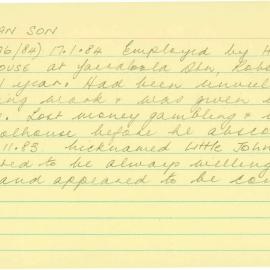 AN SON
76/84) 17.1.84 Employed by H
OUSE at Yarraloola Stn, Roebo
1 year. Had been unwell
ing work & was given
Lost money gambling &
olhouse before he absco
.11.83. Nicknamed Little John
ed to be always willing
and appeared to be con